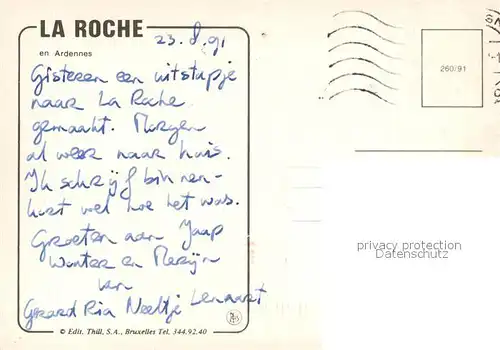 LA ROCHE
en Ardennes
23.8.91
Gisteren een uitstapje
naar La Roche
gemaakt. Morgen
al weer naar huis.
Ik schrijf binnen-
kort wel hoe het was.
Groeten aan Jaap
Wouter en Merijn
van
Gerard Ria Neeltje Lennart
© Edit. Thill, S.A., Bruxelles Tel. 344.92.40
260/91
privacy protection
Datenschutz